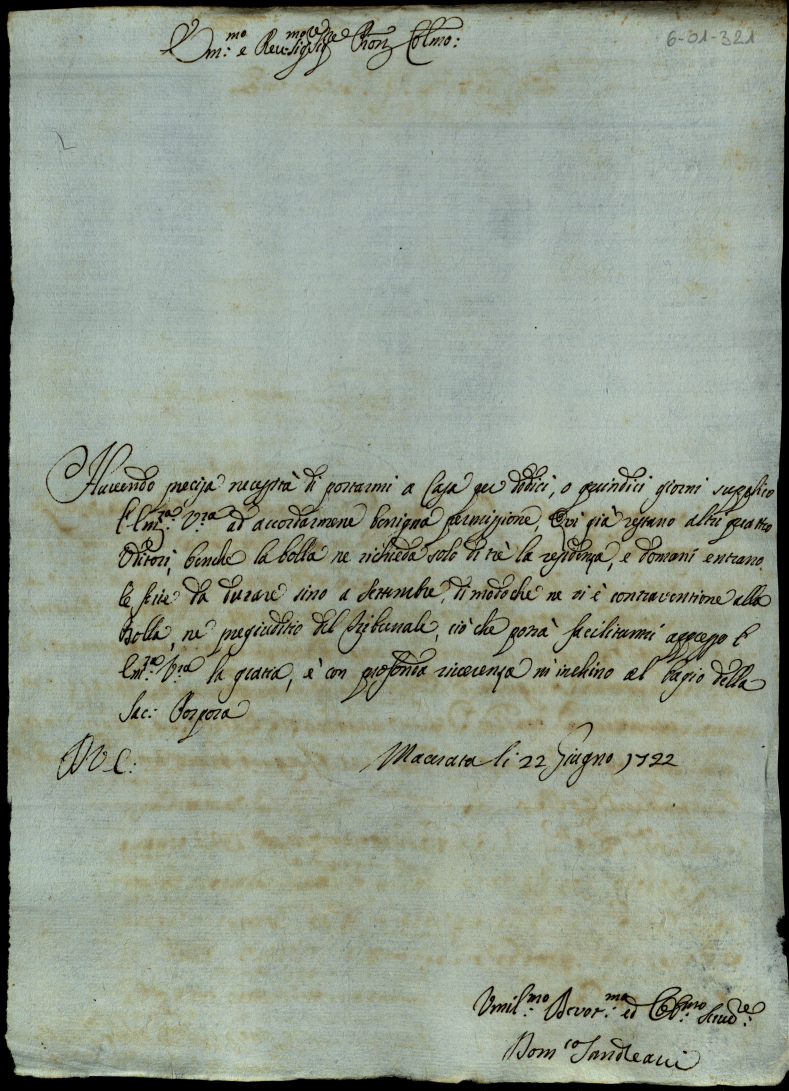 Em:mo e Rev:mo Sig:re Sig:re Pron Colmo:
6-01-321
Havendo precisa necessità di portarmi a Casa per dodici, o quindici giorni supplico
l'Em:za V:ra ad accordarmene benigna permissione, Qui già restano altri quattro
Uditori, benche la bolla ne richieda solo di trè la residenza, e domani entrano
le ferie da durare sino a Settembre, di modo che ne vi è contraventione alla
Bolla, ne pregiuditio del Tribunale, ciò che potrà facilitarmi appresso l'
Em:za V:ra la gratia, è con profonda riverenza m'inchino al bagio della
Sac: Porpora
D V E:
Macerata li 22 Giugno 1722
Umil:mo Devot:mo ed Obl:mo Servid:re
Dom:co